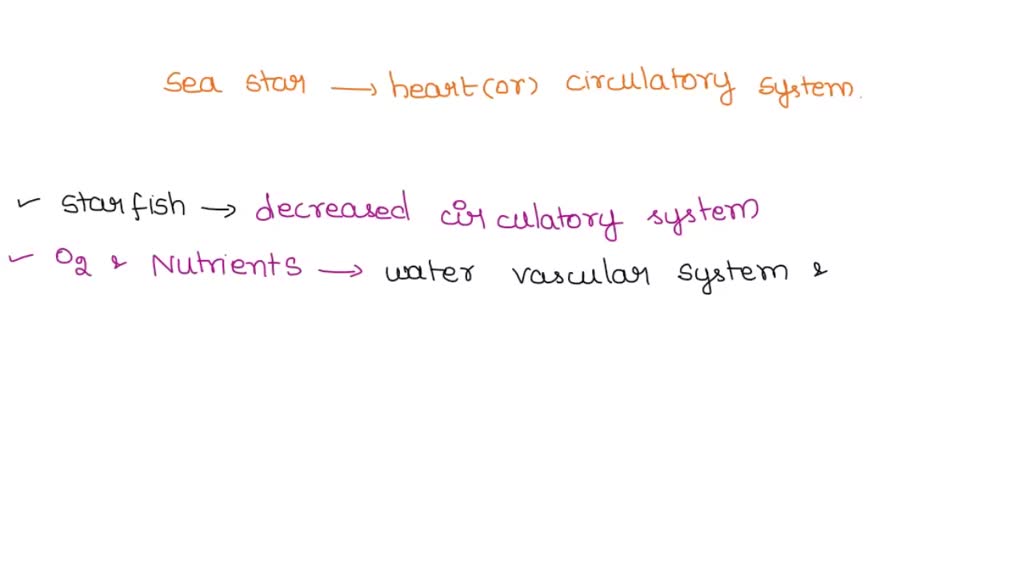 Sea star → heart (or) circulatory system.
✓ starfish → decreased circulatory system
✓ O2 & Nutrients → water vascular system &